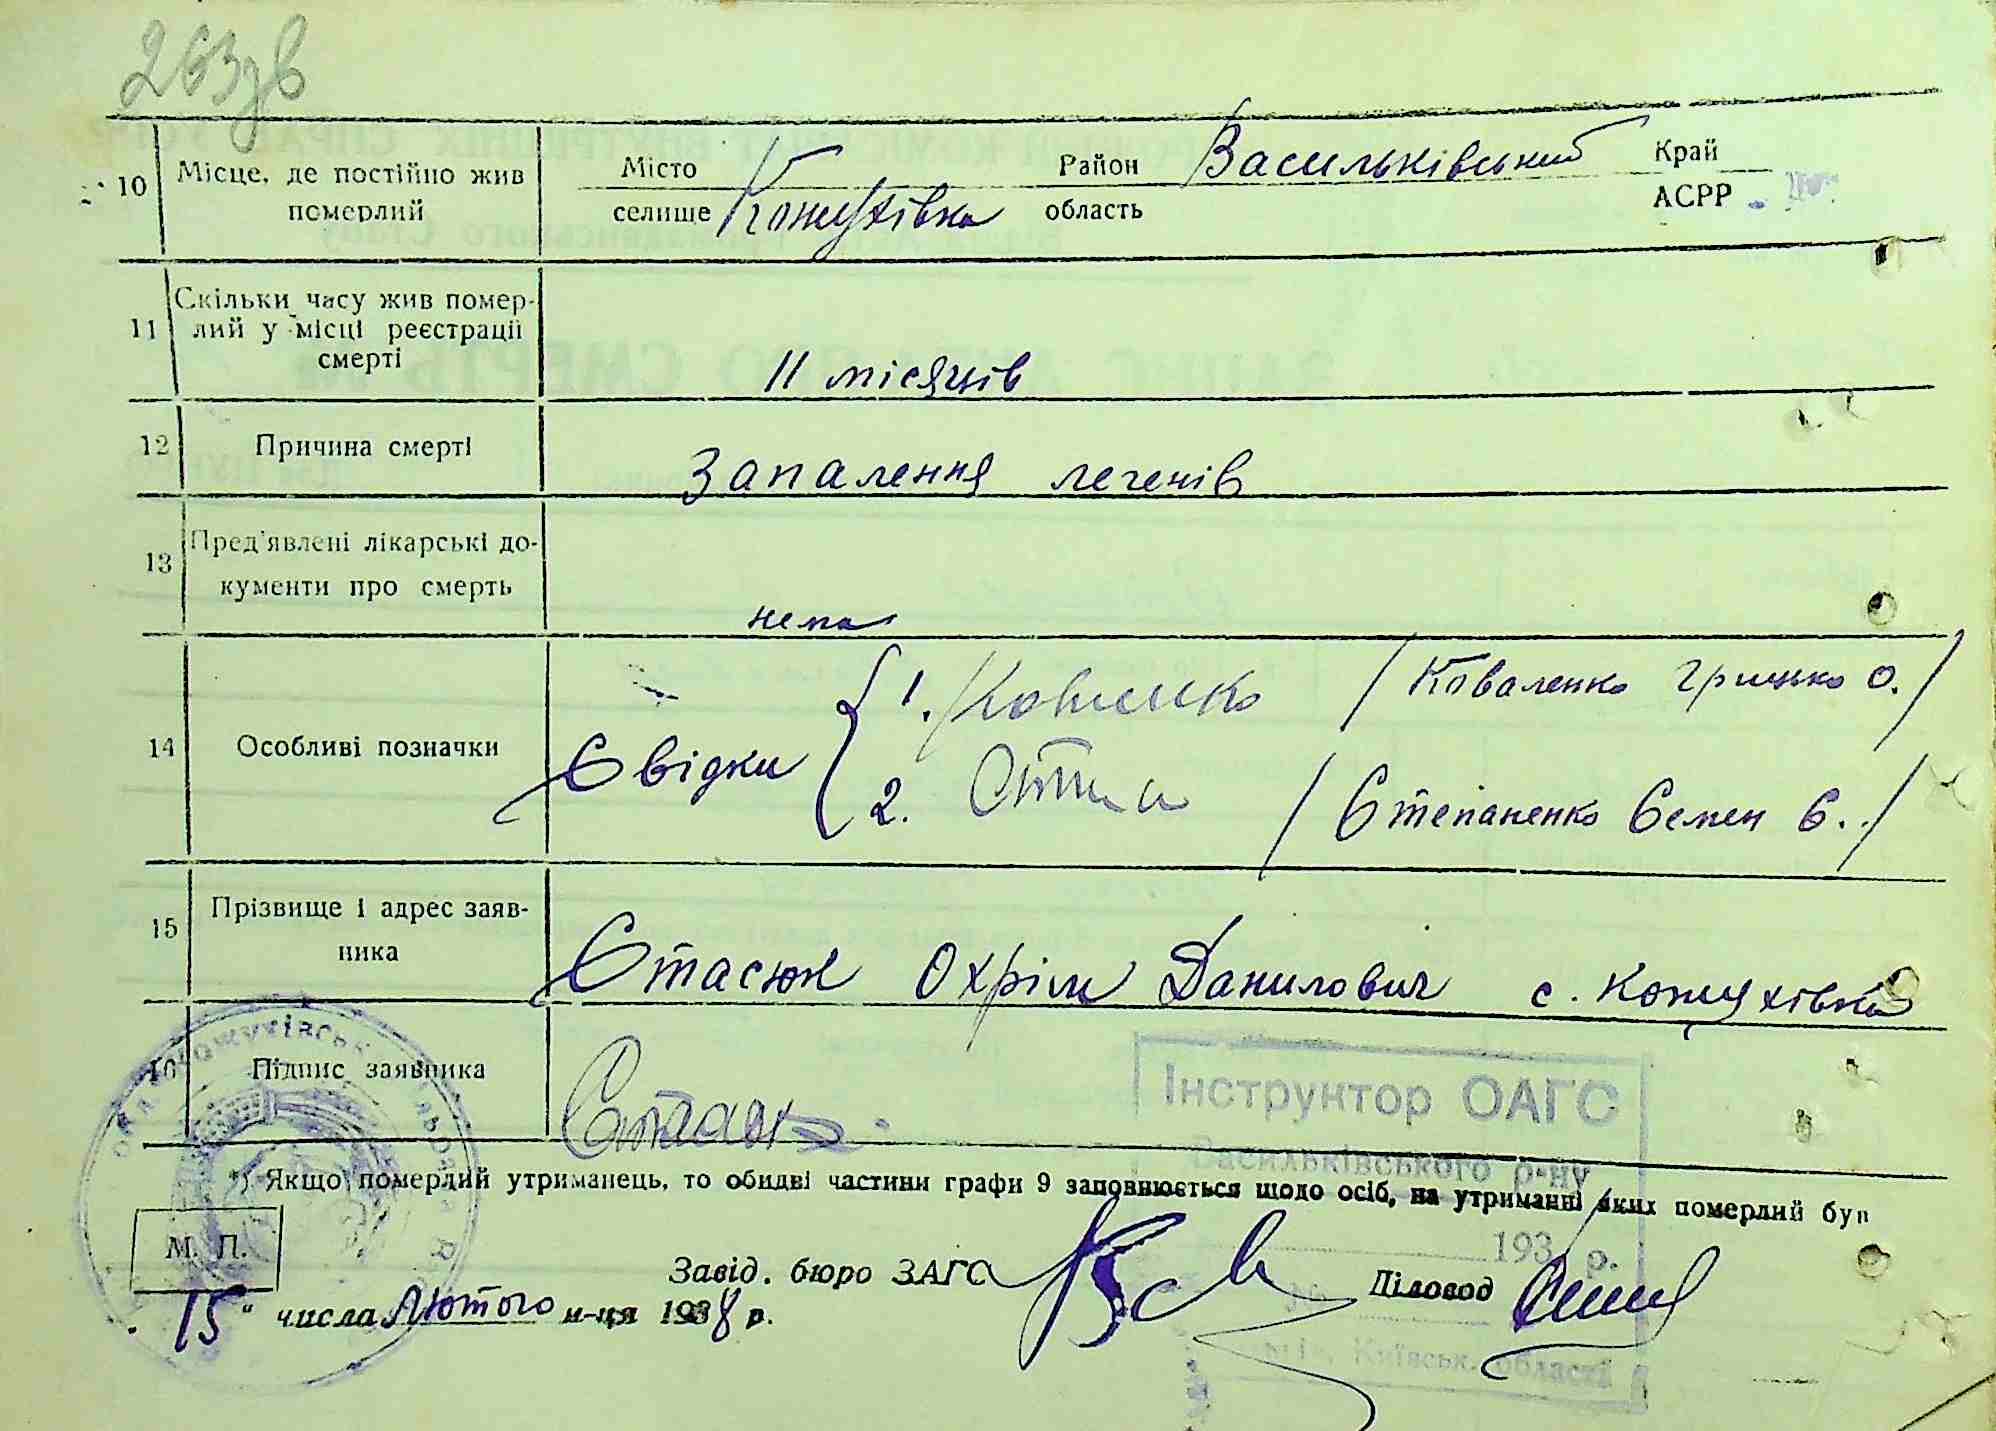 263зв
10 Місце, де постійно жив померлий Місто селище Кожухівка Район область Васильківський Край АСРР
11 Скільки часу жив помер-
лий у місці реєстрації
смерті 11 місяців
12 Причина смерті Запалення легенів
13 Пред'явлені лікарські до-
кументи про смерть нема
14 Особливі позначки Свідки 1. /Коваленко Грицько О./
2. /Степаненко Семен Є../
15 Прізвище і адрес заяв-
ника Стасюк Охрім Данилович с. Кожухівка
16 Підпис заявника Стасюк
Інструктор ОАГС
Васильківського р-ну
193 р.
Київськ. області
*) Якщо померлий утриманець, то обидві частини графи 9 заповнюється щодо осіб, на утриманні яких померлий був
М. П.
Завід. бюро ЗАГС Діловод
"15" числа Лютого м-ця 1938 р.